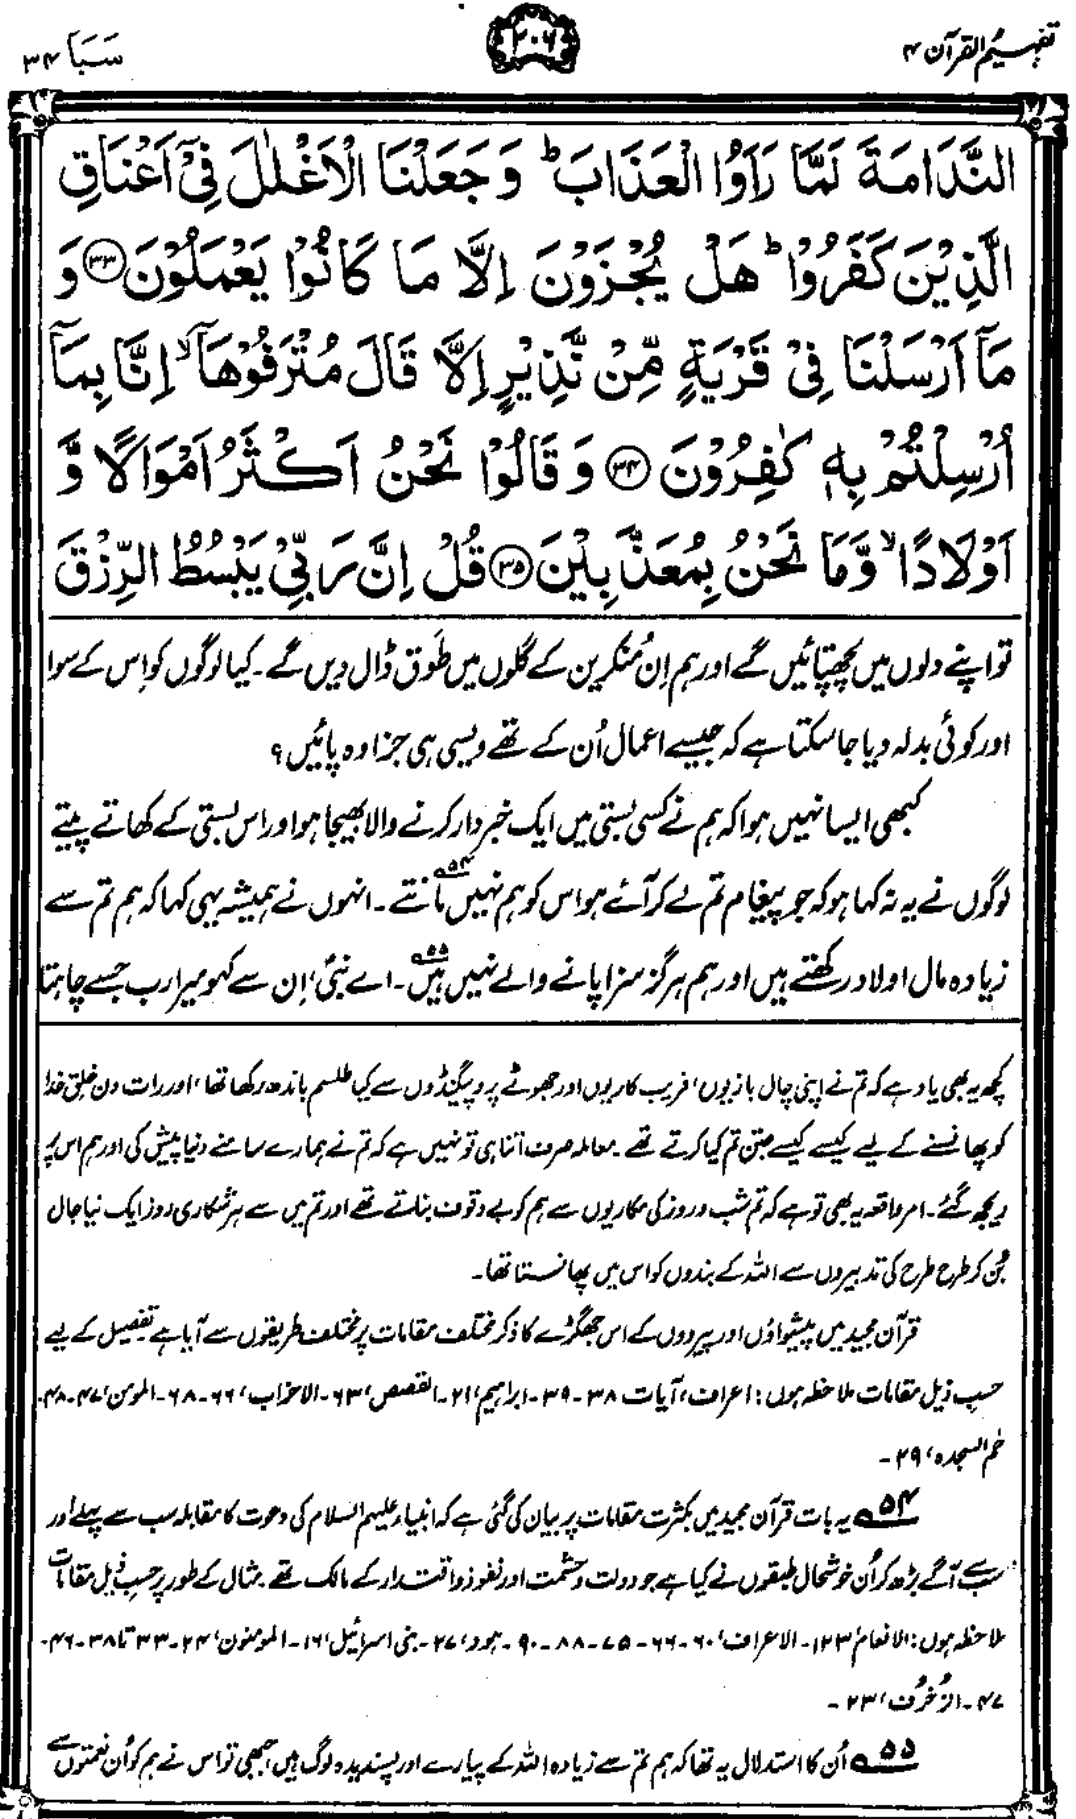 تفہیم القرآن ۴
۲۰۶
سَبَا ۳۴
النَّدَامَةَ لَمَّا رَاَوُا الْعَذَابَ ؕ وَجَعَلْنَا الْاَغْلٰلَ فِیْۤ اَعْنَاقِ
الَّذِیْنَ كَفَرُوْا ؕ هَلْ یُجْزَوْنَ اِلَّا مَا كَانُوْا یَعْمَلُوْنَ ﴿۳۳﴾ وَ
مَاۤ اَرْسَلْنَا فِیْ قَرْیَةٍ مِّنْ نَّذِیْرٍ اِلَّا قَالَ مُتْرَفُوْهَاۤ ۙ اِنَّا بِمَاۤ
اُرْسِلْتُمْ بِهٖ كٰفِرُوْنَ ﴿۳۴﴾ وَقَالُوْا نَحْنُ اَكْثَرُ اَمْوَالًا وَّ
اَوْلَادًا ۙ وَّمَا نَحْنُ بِمُعَذَّبِیْنَ ﴿۳۵﴾ قُلْ اِنَّ رَبِّیْ یَبْسُطُ الرِّزْقَ
تو اپنے دلوں میں پچھتائیں گے اور ہم اِن مُنکرین کے گلوں میں طَوق ڈال دیں گے۔ کیا لوگوں کو اِس کے سوا
اور کوئی بدلہ دیا جا سکتا ہے کہ جیسے اعمال اُن کے تھے ویسی ہی جزا وہ پائیں؟
کبھی ایسا نہیں ہوا کہ ہم نے کسی بستی میں ایک خبردار کرنے والا بھیجا ہو اور اس بستی کے کھاتے پیتے
لوگوں نے یہ نہ کہا ہو کہ جو پیغام تم لے کر آئے ہو اس کو ہم نہیں مانتے۵۴۔ انہوں نے ہمیشہ یہی کہا کہ ہم تم سے
زیادہ مال اولاد رکھتے ہیں اور ہم ہرگز سزا پانے والے نہیں ہیں۵۵۔ اے نبیؐ، اِن سے کہو میرا رب جسے چاہتا
کچھ یہ بھی یاد ہے کہ تم نے اپنی چال بازیوں، فریب کاریوں اور جھوٹے پروپیگنڈوں سے کیا طلسم باندھ رکھا تھا، اور رات دن خلقِ خدا
کو پھانسنے کے لیے کیسے کیسے جتن تم کیا کرتے تھے۔ معاملہ صرف اتنا ہی تو نہیں ہے کہ تم نے ہمارے سامنے دنیا پیش کی اور ہم اس پر
ریجھ گئے۔ امر واقعہ یہ بھی تو ہے کہ تم شب و روز کی مکاریوں سے ہم کو بے وقوف بناتے تھے اور تم میں سے ہر شکاری روز ایک نیا جال
بُن کر طرح طرح کی تدبیروں سے اللہ کے بندوں کو اس میں پھانستا تھا۔
قرآن مجید میں پیشواؤں اور پیرووں کے اس جھگڑے کا ذکر مختلف مقامات پر مختلف طریقوں سے آیا ہے تفصیل کے لیے
حسبِ ذیل مقامات ملاحظہ ہوں: اعراف، آیات ۳۸-۳۹۔ ابراہیم، ۲۱۔ القصص، ۶۳۔ الاحزاب، ۶۶-۶۸۔ المومن، ۴۷-۴۸۔
حٰم السجدہ، ۲۹۔
۵۴ یہ بات قرآن مجید میں بکثرت مقامات پر بیان کی گئی ہے کہ انبیاء علیہم السلام کی دعوت کا مقابلہ سب سے پہلے اور
سب سے آگے بڑھ کر اُن خوشحال طبقوں نے کیا ہے جو دولت و حشمت اور نفوذ و اقتدار کے مالک تھے۔ مثال کے طور پر حسبِ ذیل مقامات
ملاحظہ ہوں: الانعام، ۱۲۳۔ الاعراف، ۶۰-۶۶-۷۵-۸۸-۹۰۔ ہود، ۲۷۔ بنی اسرائیل، ۱۶۔ المومنون، ۲۴-۳۳ تا ۳۸-۴۶۔
۴۷۔ الزُخرُف، ۲۳۔
۵۵ اُن کا استدلال یہ تھا کہ ہم تم سے زیادہ اللہ کے پیارے اور پسندیدہ لوگ ہیں، جبھی تو اس نے ہم کو اُن نعمتوں سے